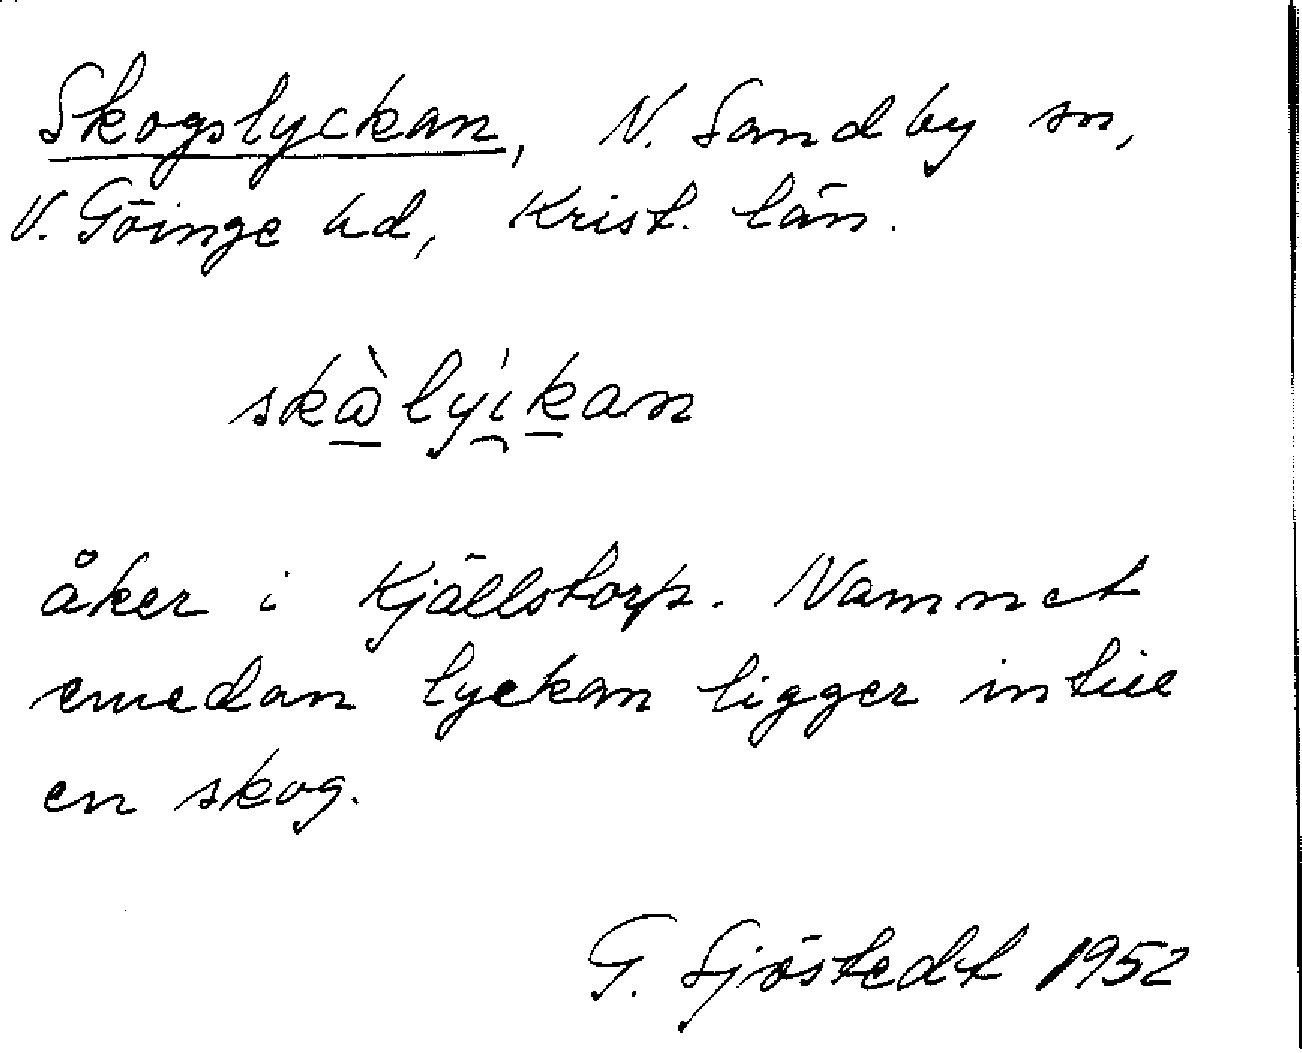 Skogslyckan, N. Sandby sn,
V. Göinge hd, Krist. län.
åker i Kjällstorp. Namnet
emedan lyckan ligger intill
en skog.
G. Sjöstedt 1952